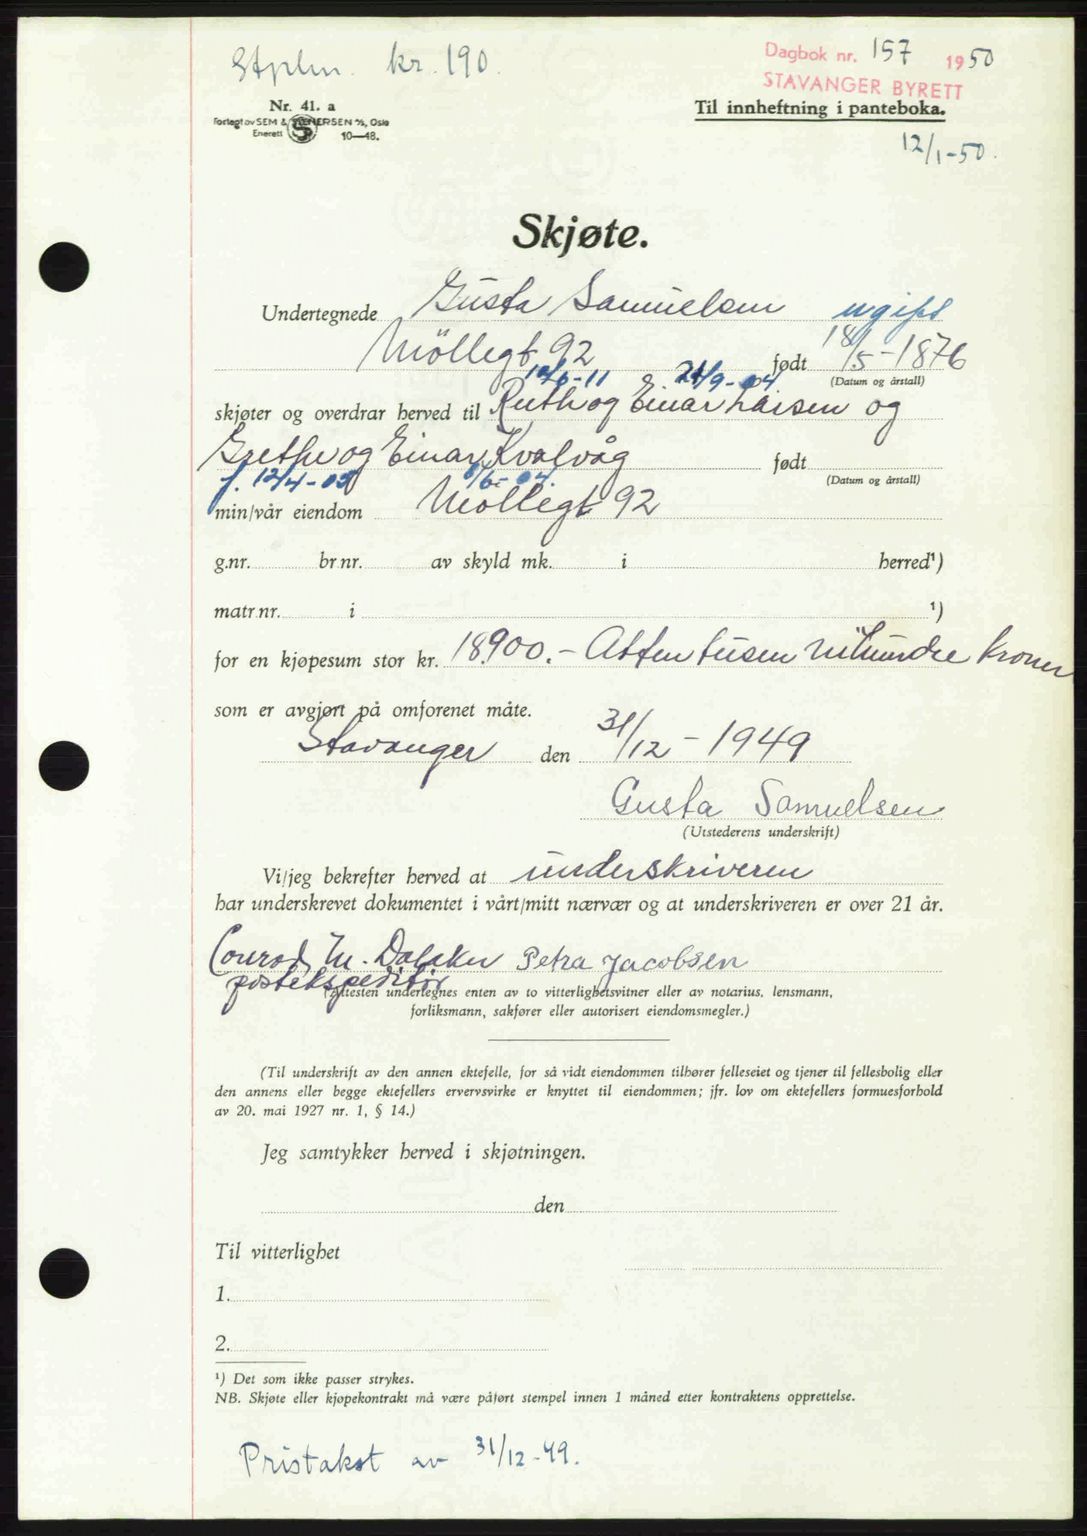 Stplm. kr. 190.
Dagbok nr. 157 1950
STAVANGER BYRETT
Nr. 41. a
Forlagt av SEM & STENERSEN A/S, Oslo
Enerett 10—48.
Til innheftning i panteboka.
12/1-50.
Skjøte.
Undertegnede Gusta Samuelsen ugift
Möllegt 92 født 18/5-1876
(Datum og årstall)
12/6-11 21/9-04
skjøter og overdrar herved til Ruth og Einar Larsen og
Grethe og Einar Kvalvåg født
f. 12/4-05 6/6-04. (Datum og årstall)
min/vår eiendom Möllegt 92
g.nr. br.nr. av skyld mk. i herred¹)
matr.nr. i ¹)
for en kjøpesum stor kr. 18900.- Atten tusen nihundre kroner
som er avgjort på omforenet måte.
Stavanger den 31/12-1949
Gusta Samuelsen
(Utstederens underskrift)
Vi/jeg bekrefter herved at underskriveren
har underskrevet dokumentet i vårt/mitt nærvær og at underskriveren er over 21 år.
Conrad M. Petra Jacobsen
postekspeditör
(Attesten undertegnes enten av to vitterlighetsvitner eller av notarius, lensmann,
forliksmann, sakfører eller autorisert eiendomsmegler.)
(Til underskrift av den annen ektefelle, for så vidt eiendommen tilhører felleseiet og tjener til fellesbolig eller
den annens eller begge ektefellers ervervsvirke er knyttet til eiendommen; jfr. lov om ektefellers formuesforhold
av 20. mai 1927 nr. 1, § 14.)
Jeg samtykker herved i skjøtningen.
den
Til vitterlighet
1.
2.
¹) Det som ikke passer strykes.
NB. Skjøte eller kjøpekontrakt må være påført stempel innen 1 måned etter kontraktens opprettelse.
Pristakst av 31/12-49.